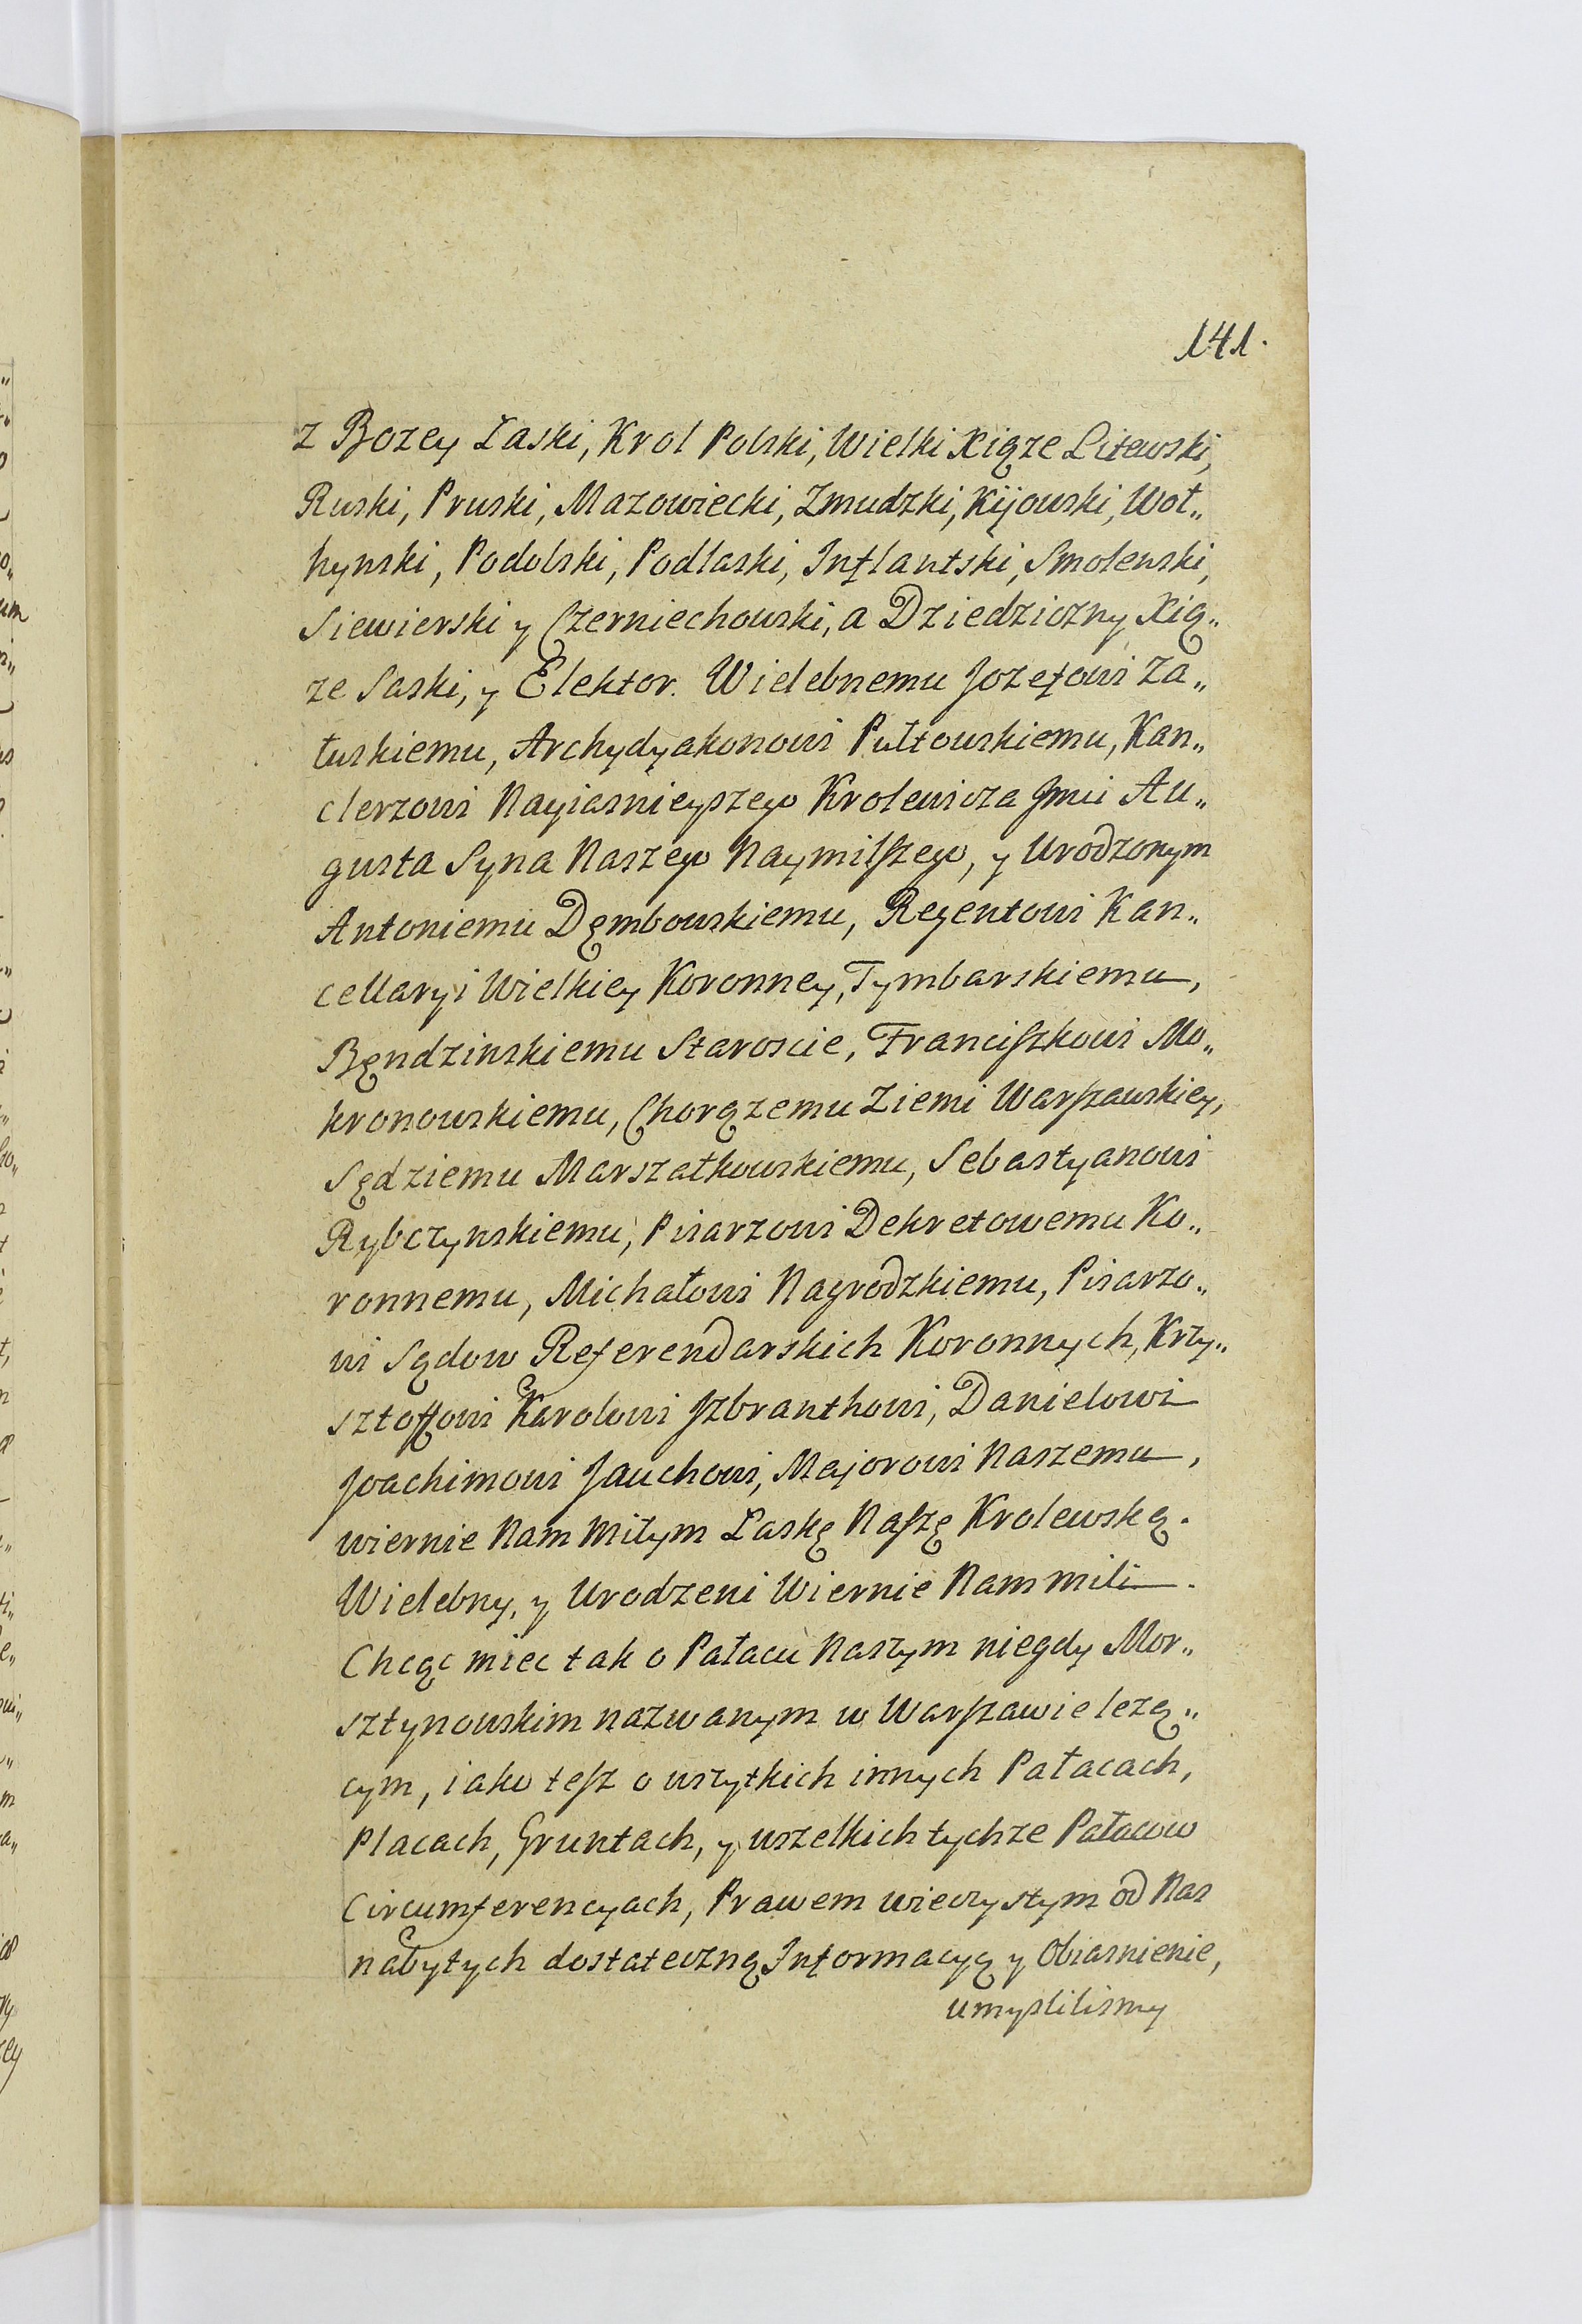 141.
z Bozey Łaski, Krol Polski, Wielki Xiąze Litewski,
Ruski, Pruski, Mazowiecki, Zmudzki, Kijowski, Woł„
hynski, Podolski, Podlaski, Inflantski, Smolenski,
Siewierski y Czerniechowski, a Dziedziczny Xią„
ze Saski, y Elektor. Wielebnemu Jozefowi Za„
łuskiemu, Archydyakonowi Pułtowskiemu, Kan„
clerzowi Nayiasnieyszego Krolewicza Jmci Au„
gusta Syna Naszego Naymilszego, y Urodzonym
Antoniemu Dęmbowskiemu, Regentowi Kan„
cellaryi Wielkiey Koronney, Tymbarskiemu,
Będzinskiemu Staroscie, Franciszkowi Mo„
kronowskiemu, Chorązemu Ziemi Warszawskiey,
Sędziemu Marszałkowskiemu, Sebastyanowi
Rybczynskiemu, Pisarzowi Dekretowemu Ko„
ronnemu, Michałowi Nagrodzkiemu, Pisarzo„
wi Sądow Referendarskich Koronnych, Krzy„
sztoffowi Karolowi Jzbranthowi, Danielowi
Joachimowi Jauchowi, Majorowi Naszemu,
wiernie Nam Miłym Łaskę Naszę Krolewską.
Wielebny, y Urodzeni Wiernie Nam mili.
Chcąc miec tak o Pałacu Naszym niegdy Mor„
sztynowskim nazwanym w Warszawie lezą„
cym, iako tesz o wszytkich innych Pałacach,
Placach, Gruntach, y wszelkich tychze Pałacow
Circumferencyach, Prawem wieczystym od Nas
nabytych dostateczną Informacyą y Obiasnienie,
umyslilismy